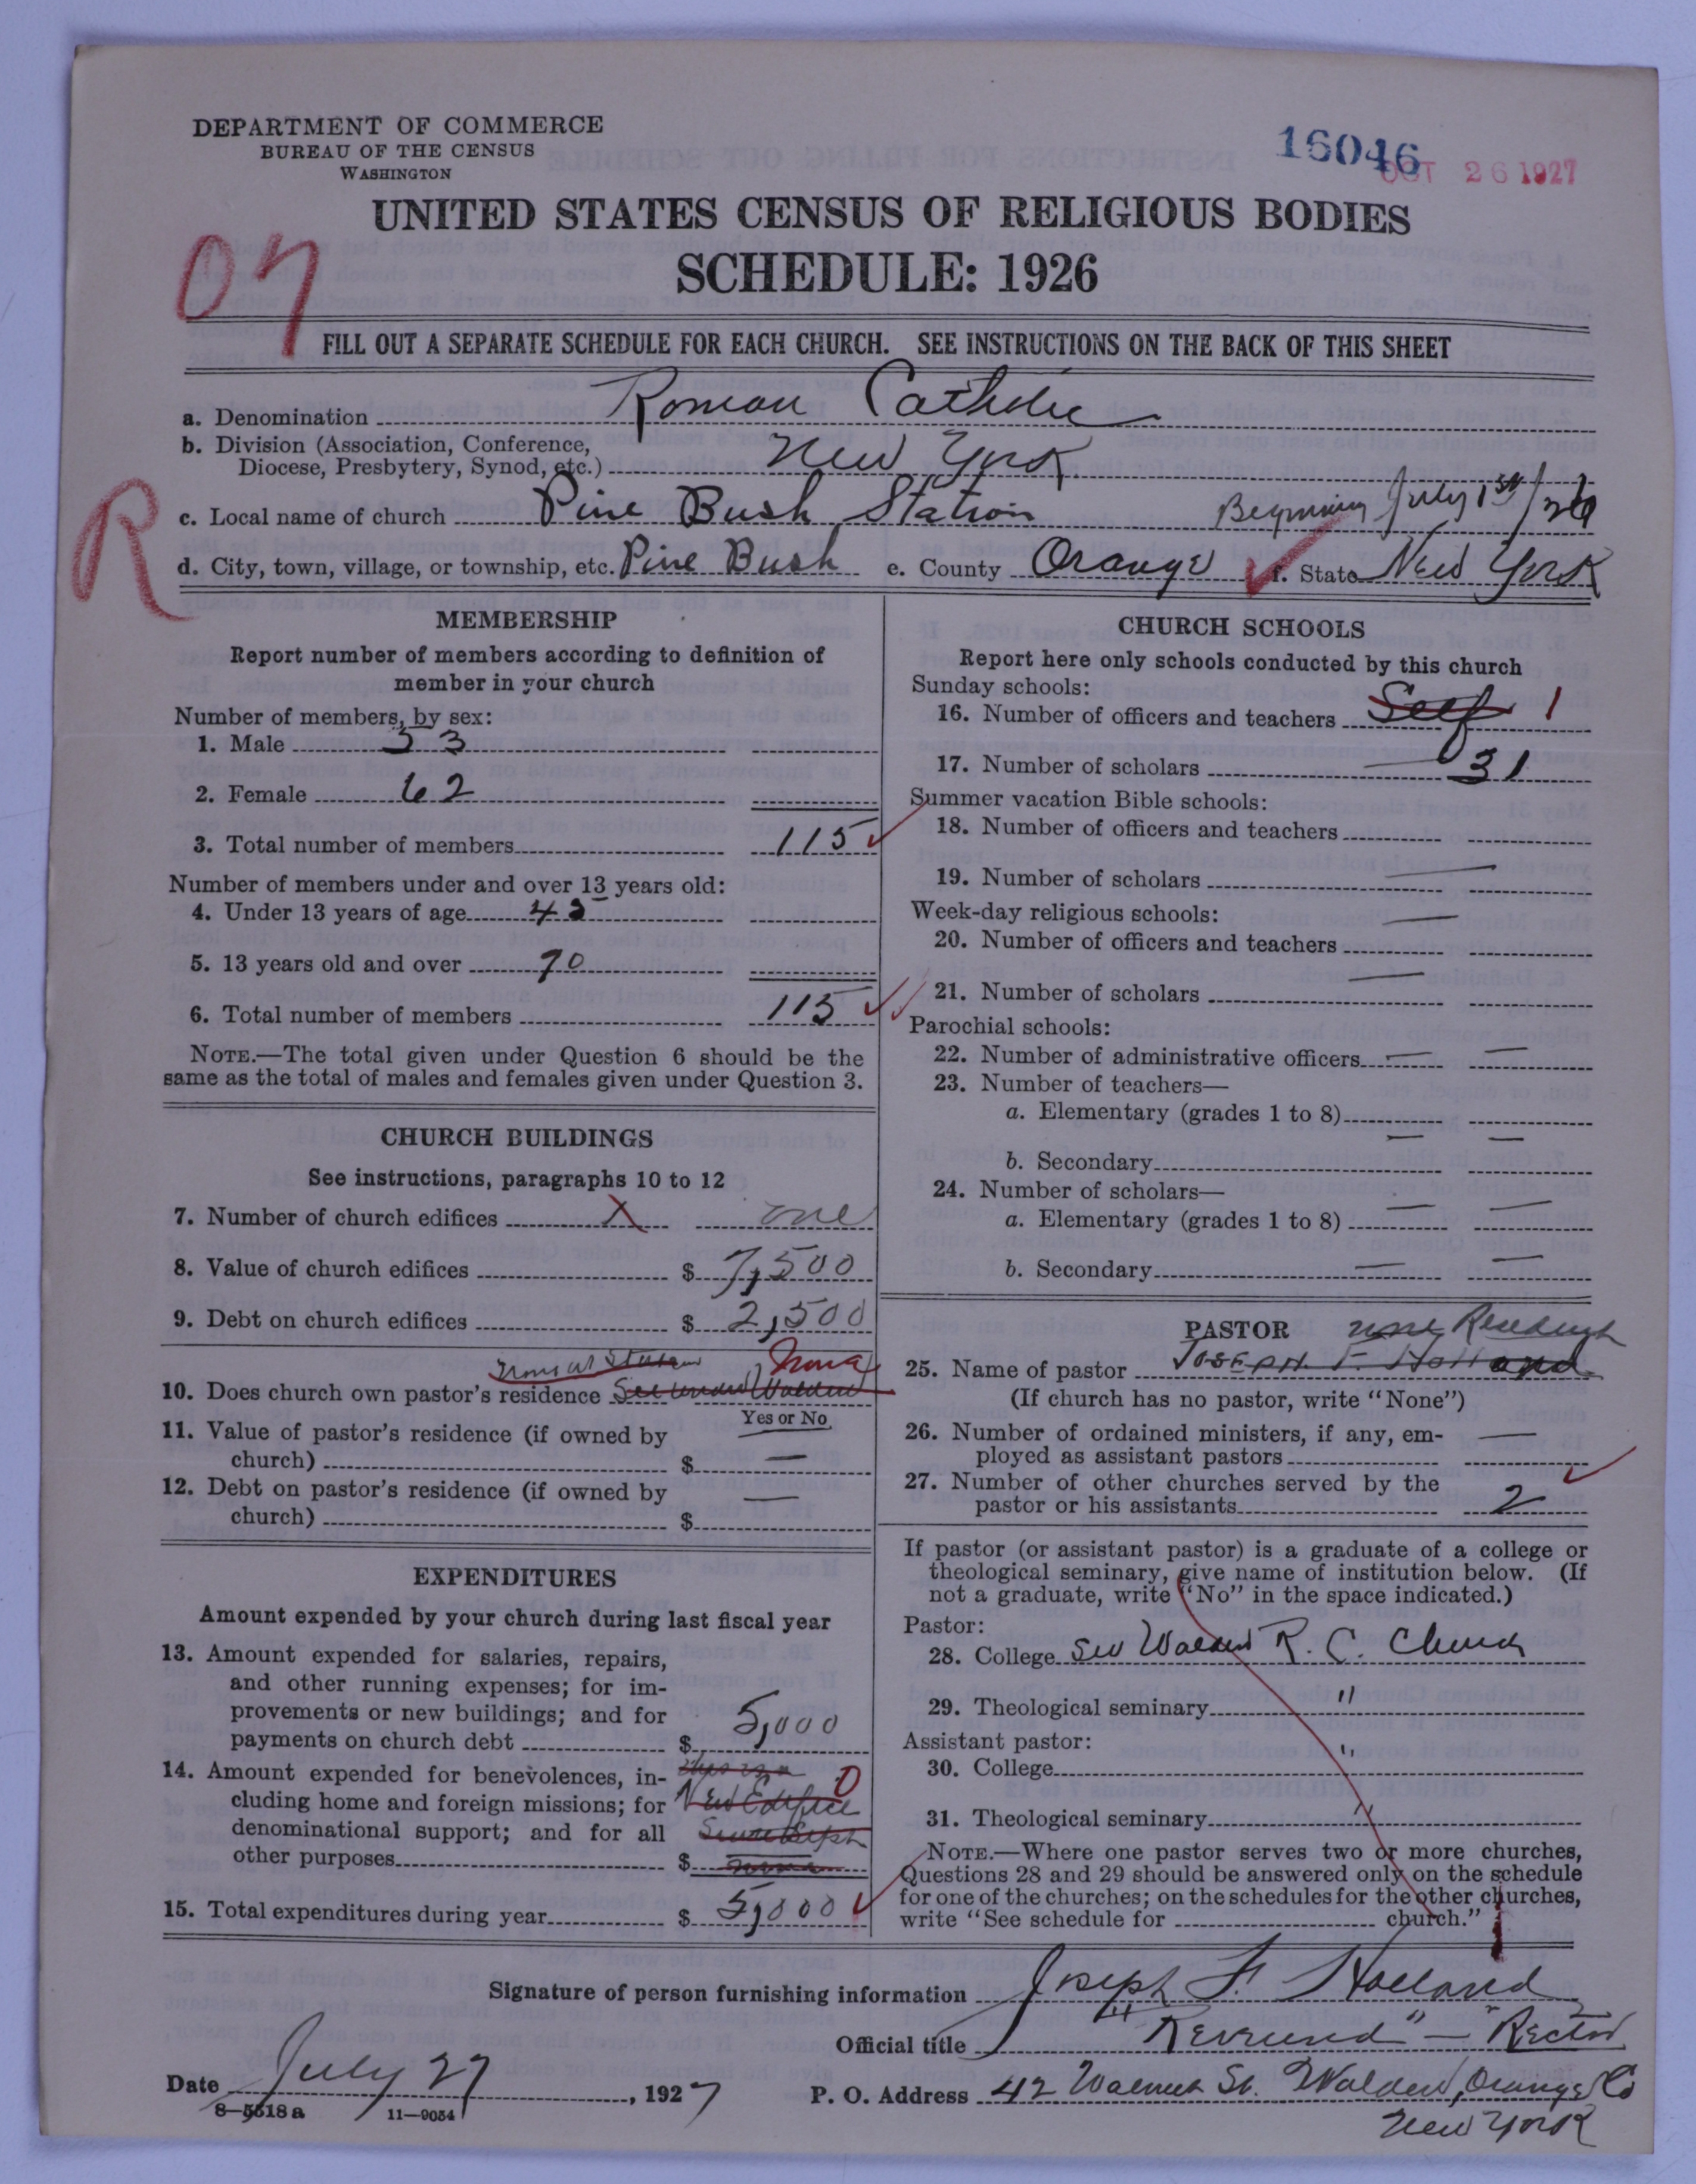 DEPARTMENT OF COMMERCE
BUREAU OF THE CENSUS
WASHINGTON
16046
OCT 26 1927
UNITED STATES CENSUS OF RELIGIOUS BODIES
SCHEDULE: 1926
07
FILL OUT A SEPARATE SCHEDULE FOR EACH CHURCH. SEE INSTRUCTIONS ON THE BACK OF THIS SHEET
a. Denomination Roman Catholic
b. Division (Association, Conference,
Diocese, Presbytery, Synod, etc.) New York
R
c. Local name of church Pine Bush Station Beginning July 1st/26
d. City, town, village, or township, etc. Pine Bush e. County Orange f. State New York
MEMBERSHIP
Report number of members according to definition of
member in your church
Number of members, by sex:
1. Male 53
2. Female 62
3. Total number of members 115
Number of members under and over 13 years old:
4. Under 13 years of age 45
5. 13 years old and over 70
6. Total number of members 115
NOTE.—The total given under Question 6 should be the
same as the total of males and females given under Question 3.
CHURCH BUILDINGS
See instructions, paragraphs 10 to 12
7. Number of church edifices X one
8. Value of church edifices $ 7,500
9. Debt on church edifices $ 2,500
10. Does church own pastor's residence See under Walden
Yes or No
11. Value of pastor's residence (if owned by
church) $ —
12. Debt on pastor's residence (if owned by
church) $ —
EXPENDITURES
Amount expended by your church during last fiscal year
13. Amount expended for salaries, repairs,
and other running expenses; for im-
provements or new buildings; and for
payments on church debt $ 5,000
14. Amount expended for benevolences, in-
cluding home and foreign missions; for New Edifice 0
denominational support; and for all
other purposes $ none
15. Total expenditures during year $ 5,000
CHURCH SCHOOLS
Report here only schools conducted by this church
Sunday schools:
16. Number of officers and teachers Self 1
17. Number of scholars 31
Summer vacation Bible schools:
18. Number of officers and teachers
19. Number of scholars —
Week-day religious schools:
20. Number of officers and teachers —
21. Number of scholars —
Parochial schools:
22. Number of administrative officers — —
23. Number of teachers—
a. Elementary (grades 1 to 8)
b. Secondary — —
24. Number of scholars—
a. Elementary (grades 1 to 8) — —
b. Secondary — —
PASTOR none
25. Name of pastor Joseph. F. Holland
(If church has no pastor, write "None")
26. Number of ordained ministers, if any, em-
ployed as assistant pastors —
27. Number of other churches served by the
pastor or his assistants 2
If pastor (or assistant pastor) is a graduate of a college or
theological seminary, give name of institution below. (If
not a graduate, write "No" in the space indicated.)
Pastor:
28. College See Walden R. C. Church
29. Theological seminary "
Assistant pastor:
30. College "
31. Theological seminary "
NOTE.—Where one pastor serves two or more churches,
Questions 28 and 29 should be answered only on the schedule
for one of the churches; on the schedules for the other churches,
write "See schedule for church."
Signature of person furnishing information Joseph F. Holland
Official title "Reverend" — "Rector
Date July 27, 1927 P. O. Address 42 Walnut St. Walden, Orange Co
New York
8—5518a 11—9054